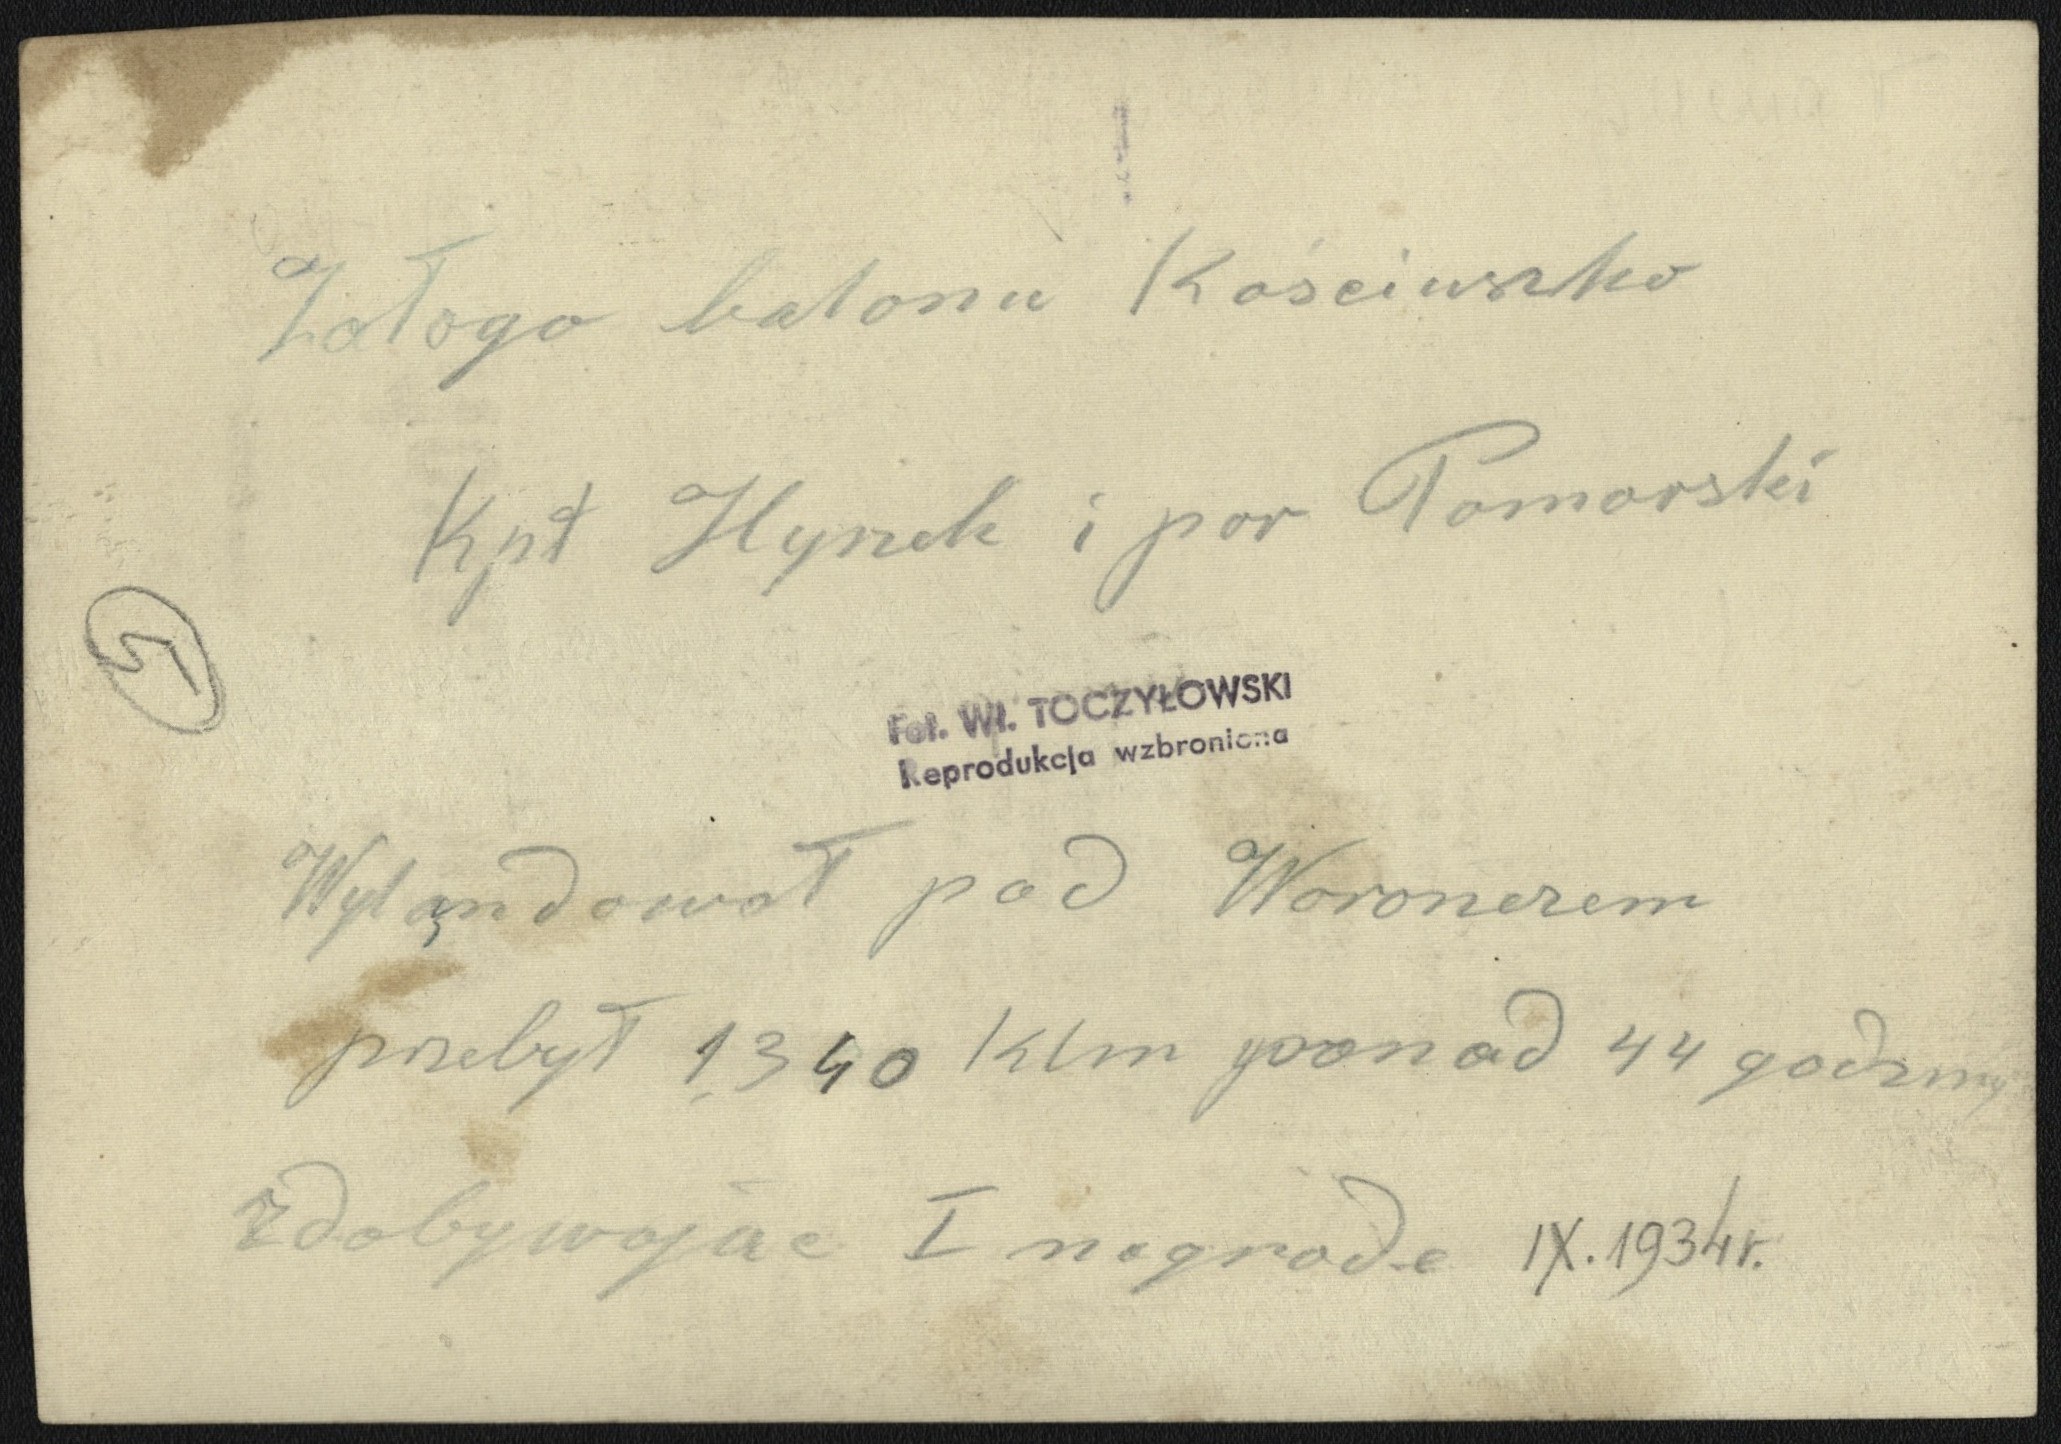 Załoga balonu Kościuszko
Kpt Hynek i por Pomorski
5
Fot. Wł. TOCZYŁOWSKI
Reprodukcja wzbroniona
Wylandował pod Woroneżem
przebył 1340 Klm ponad 44 godziny
zdobywając I nagrodę IX.1934r.